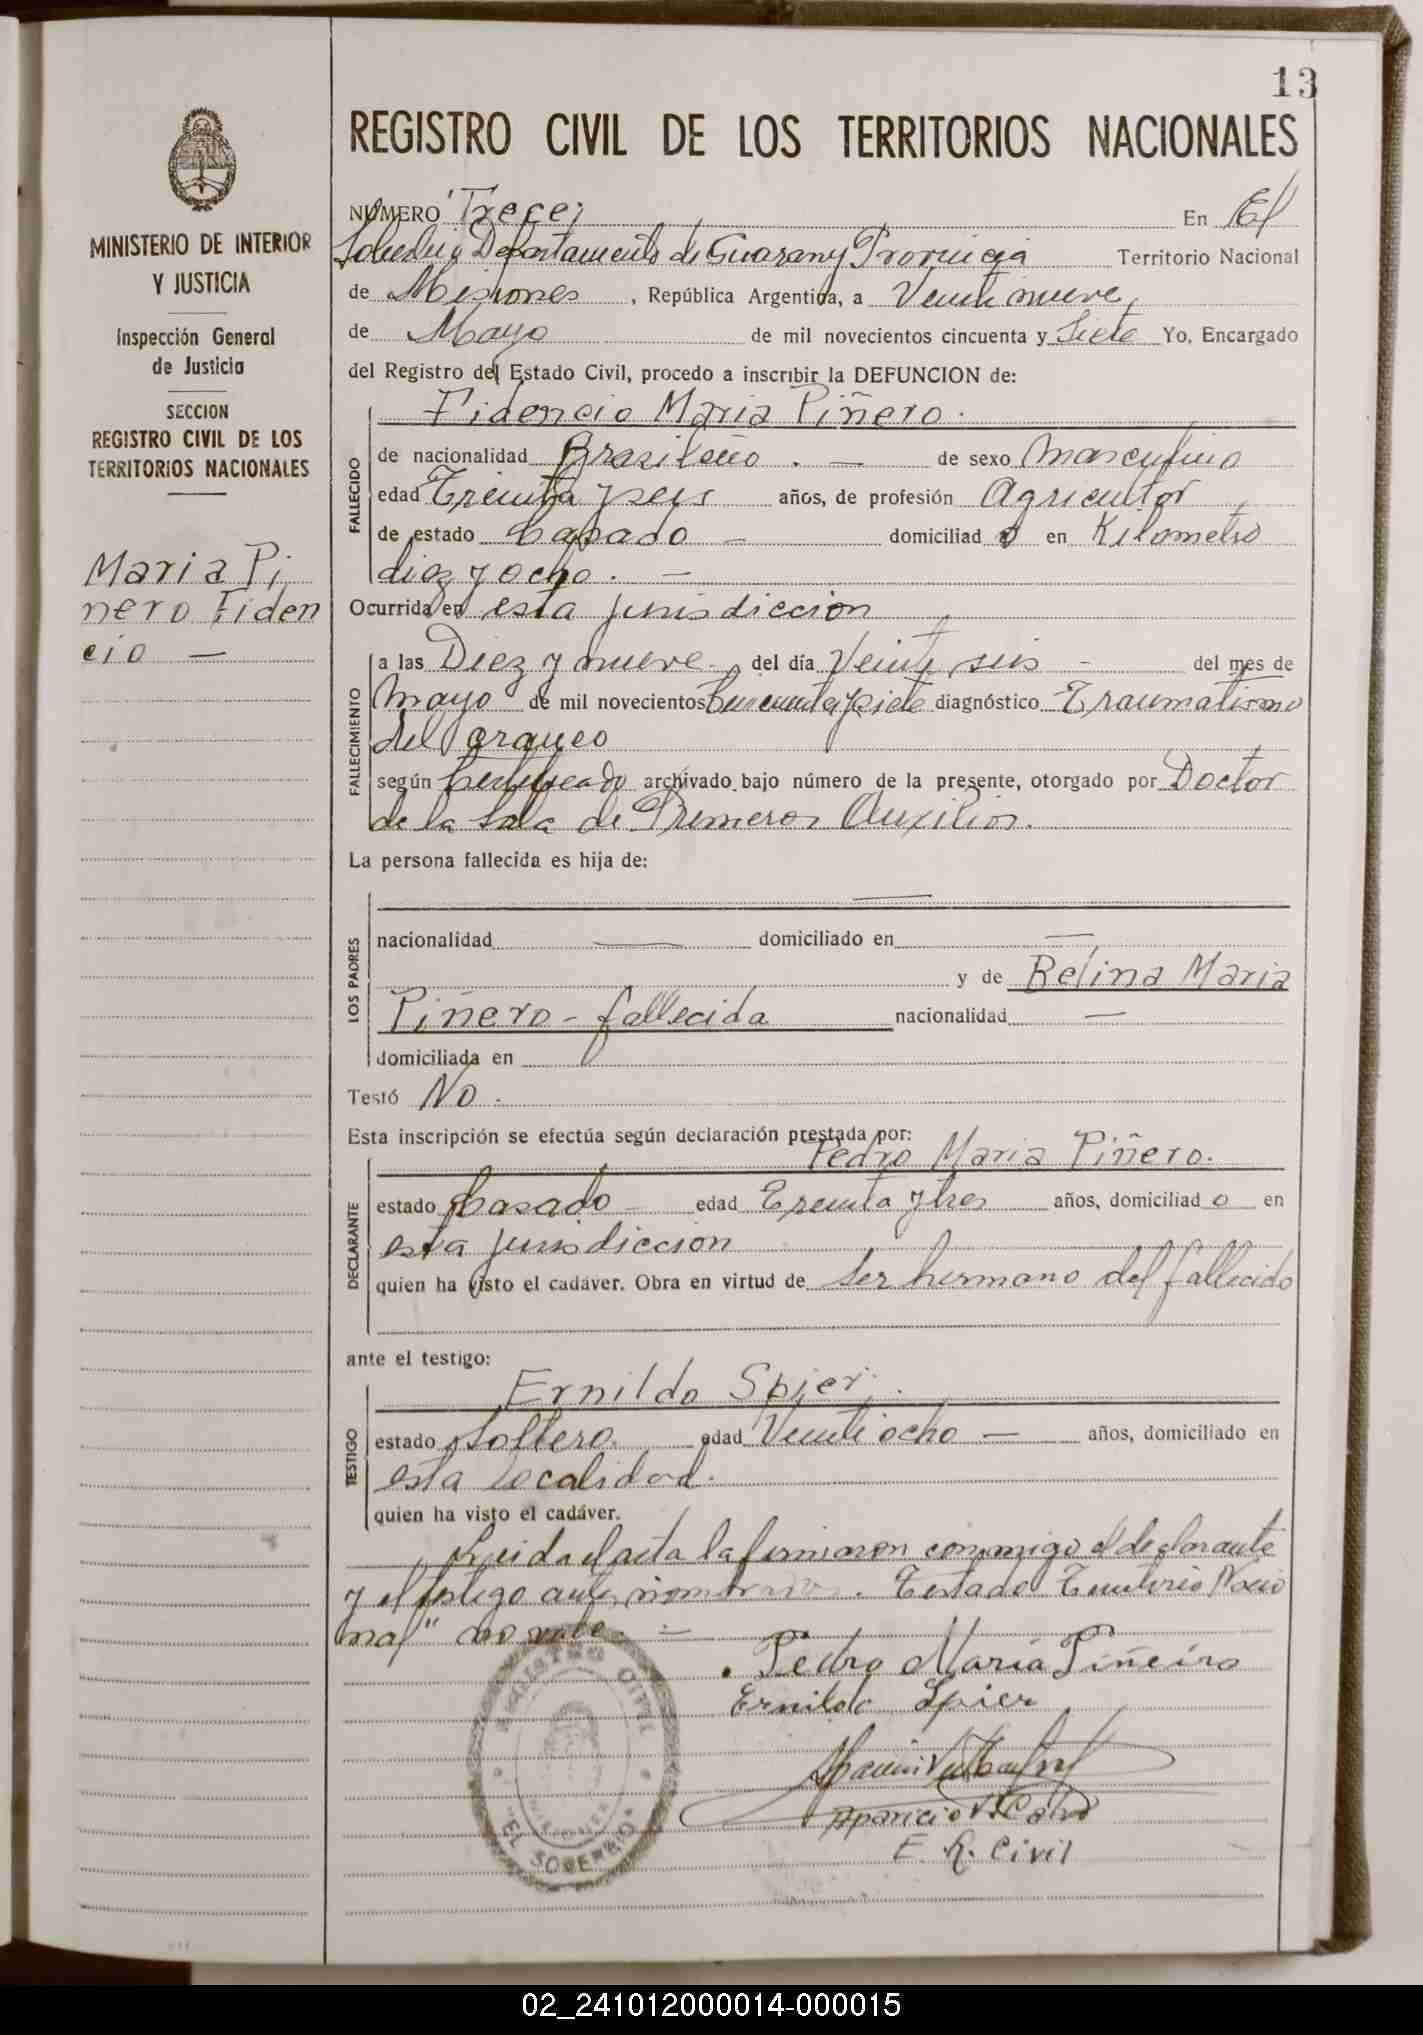 13
REGISTRO CIVIL DE LOS TERRITORIOS NACIONALES
MINISTERIO DE INTERIOR
Y JUSTICIA
Inspección General
de Justicia
SECCION
REGISTRO CIVIL DE LOS
TERRITORIOS NACIONALES
Maria Pi
nero Fiden
cio —
NUMERO Trece; En El
Soberbio Departamento de Guarany Provincia Territorio Nacional
de Misiones, República Argentina, a Veintinueve,
de Mayo de mil novecientos cincuenta y Siete Yo, Encargado
del Registro del Estado Civil, procedo a inscribir la DEFUNCION de:
Fidencio Maria Piñero.
FALLECIDO
de nacionalidad Brasileño. — de sexo masculino
edad Treinta y seis años, de profesión Agricultor
de estado Casado — domiciliado en Kilometro
diez y ocho. —
Ocurrida en esta jurisdiccion
FALLECIMIENTO
a las Diez y nueve - del día Veinte seis - del mes de
Mayo de mil novecientos Cincuenta y siete diagnóstico Traumatismo
del craneo
según Certificado archivado bajo número de la presente, otorgado por Doctor
de la Sala de Primeros Auxilios.
La persona fallecida es hija de:
—
LOS PADRES
nacionalidad — domiciliado en —
y de Belina Maria
Piñero - fallecida nacionalidad —
domiciliada en
Testó No.
Esta inscripción se efectúa según declaración prestada por:
Pedro Maria Piñero.
DECLARANTE
estado Casado — edad Treinta y tres años, domiciliado en
esta jurisdiccion
quien ha visto el cadáver. Obra en virtud de ser hermano del fallecido
ante el testigo:
Ernildo Spier.
TESTIGO
estado Soltero. edad Veintiocho — años, domiciliado en
esta localidad.
quien ha visto el cadáver.
Leida el acta la firmaron conmigo el declarante
y el testigo antes nombrados. Testado Territorio Nacio
nal" no vale. —
Pedro María Piñeiro
Ernildo Spier
Aparicio V. Cabral
E. R. Civil
REGISTRO CIVIL
"EL SOBERBIO"
MISIONES
02_241012000014-000015